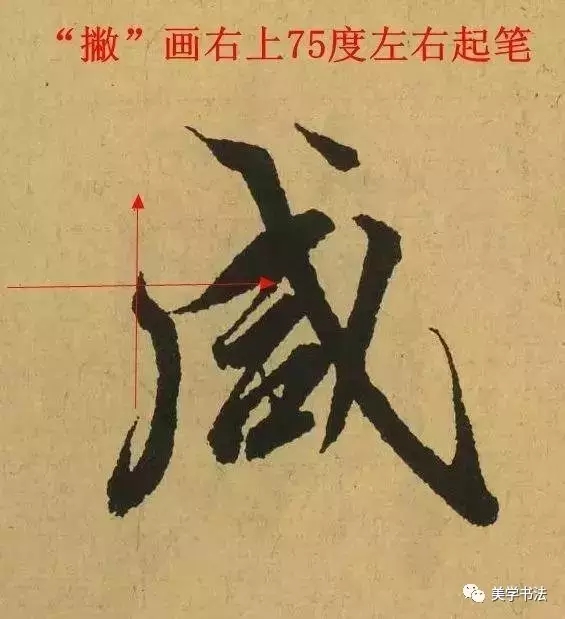 “撇”画右上75度左右起笔
咸
美学书法